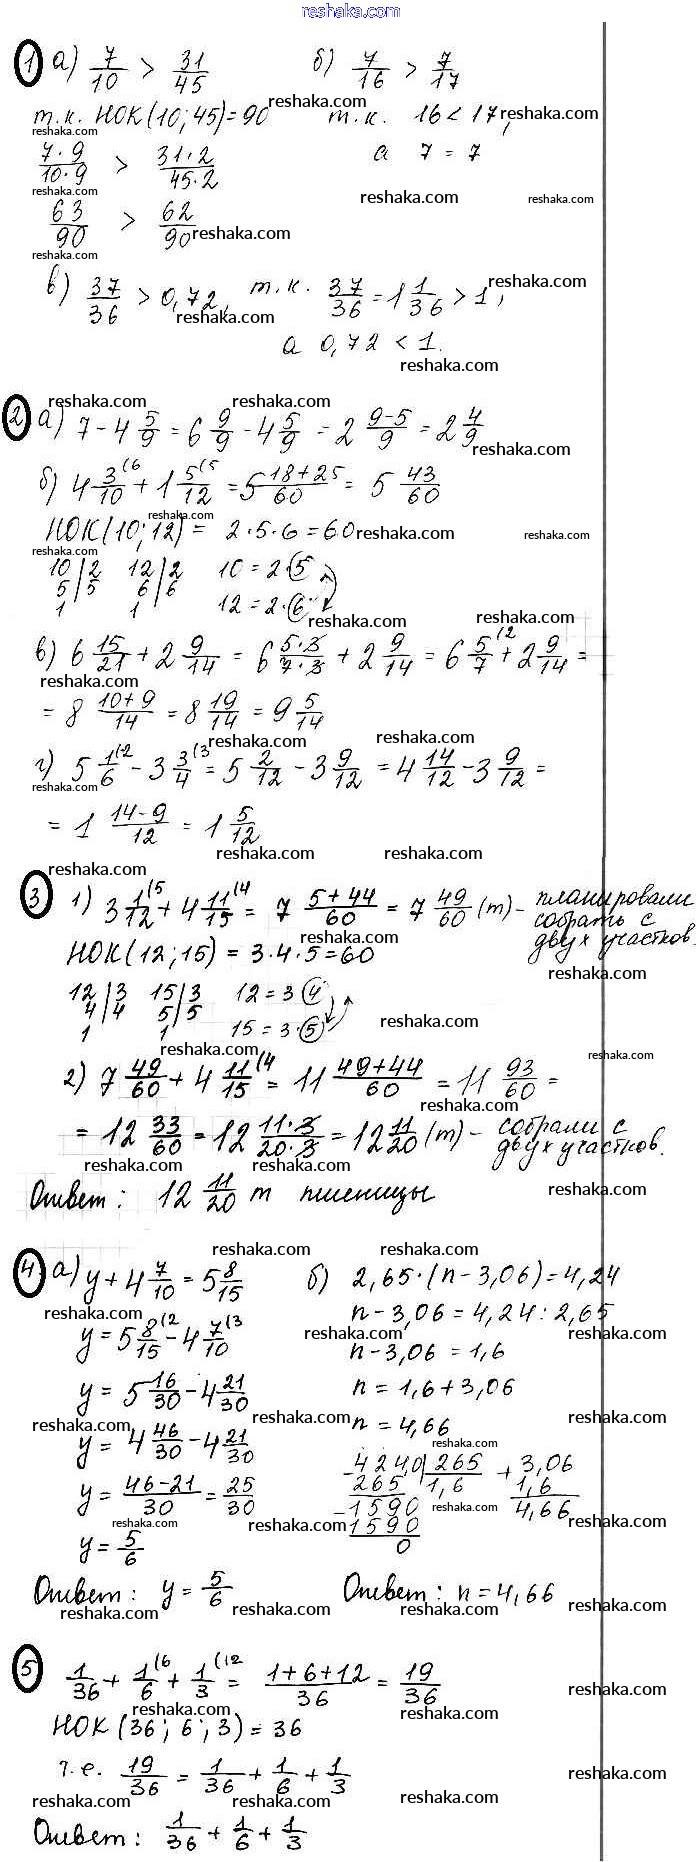 reshaka.com
1 а) 7/10 > 31/45 б) 7/16 > 7/17
т.к. НОК(10; 45) = 90 т.к. 16 < 17,
7·9/10·9 > 31·2/45·2 а 7 = 7
63/90 > 62/90
в) 37/36 > 0,72, т.к. 37/36 = 1 1/36 > 1,
а 0,72 < 1.
2 а) 7 - 4 5/9 = 6 9/9 - 4 5/9 = 2 9-5/9 = 2 4/9
б) 4 3/10 (6 + 1 5/12 (5 = 5 18+25/60 = 5 43/60
НОК(10; 12) = 2·5·6 = 60
10 | 2 12 | 2 10 = 2·5
5 | 5 6 | 6 12 = 2·6
1 1
в) 6 15/21 + 2 9/14 = 6 5·3/7·3 + 2 9/14 = 6 5/7 (2 + 2 9/14 =
= 8 10+9/14 = 8 19/14 = 9 5/14
г) 5 1/6 (2 - 3 3/4 (3 = 5 2/12 - 3 9/12 = 4 14/12 - 3 9/12 =
= 1 14-9/12 = 1 5/12
3 1) 3 1/12 (5 + 4 11/15 (4 = 7 5+44/60 = 7 49/60 (т) - планировали
собрать с
двух участков.
НОК(12; 15) = 3·4·5 = 60
12 | 3 15 | 3 12 = 3·4
4 | 4 5 | 5 15 = 3·5
1 1
2) 7 49/60 + 4 11/15 (4 = 11 49+44/60 = 11 93/60 =
= 12 33/60 = 12 11·3/20·3 = 12 11/20 (т) - собрали с
двух участков.
Ответ: 12 11/20 т пшеницы
4 а) y + 4 7/10 = 5 8/15 б) 2,65·(n - 3,06) = 4,24
y = 5 8/15 (2 - 4 7/10 (3 n - 3,06 = 4,24 : 2,65
n - 3,06 = 1,6
y = 5 16/30 - 4 21/30 n = 1,6 + 3,06
y = 4 46/30 - 4 21/30 n = 4,66
y = 46-21/30 = 25/30 424,0 | 265 + 3,06
265 1,6 1,6
1590 4,66
1590
0
y = 5/6
Ответ: y = 5/6 Ответ: n = 4,66
5 1/36 + 1/6 (6 + 1/3 (12 = 1+6+12/36 = 19/36
НОК (36; 6; 3) = 36
т.е. 19/36 = 1/36 + 1/6 + 1/3
Ответ: 1/36 + 1/6 + 1/3